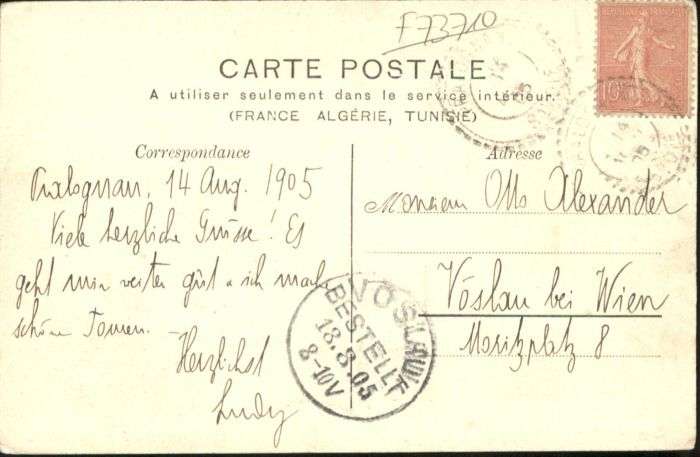 F73710
CARTE POSTALE
A utiliser seulement dans le service intérieur.
(FRANCE ALGÉRIE, TUNISIE)
Correspondance
Adresse
Pralognan, 14 Aug. 1905
Viele herzliche Grüsse! Es
geht mir weiter gut u ich mache
schöne Touren.
Herzlichst
Ludy
Monsieur Otto Alexander
Vöslau bei Wien
Moritzplatz 8
VÖSLAU
BESTELLT
18.8.05
8-10V
10